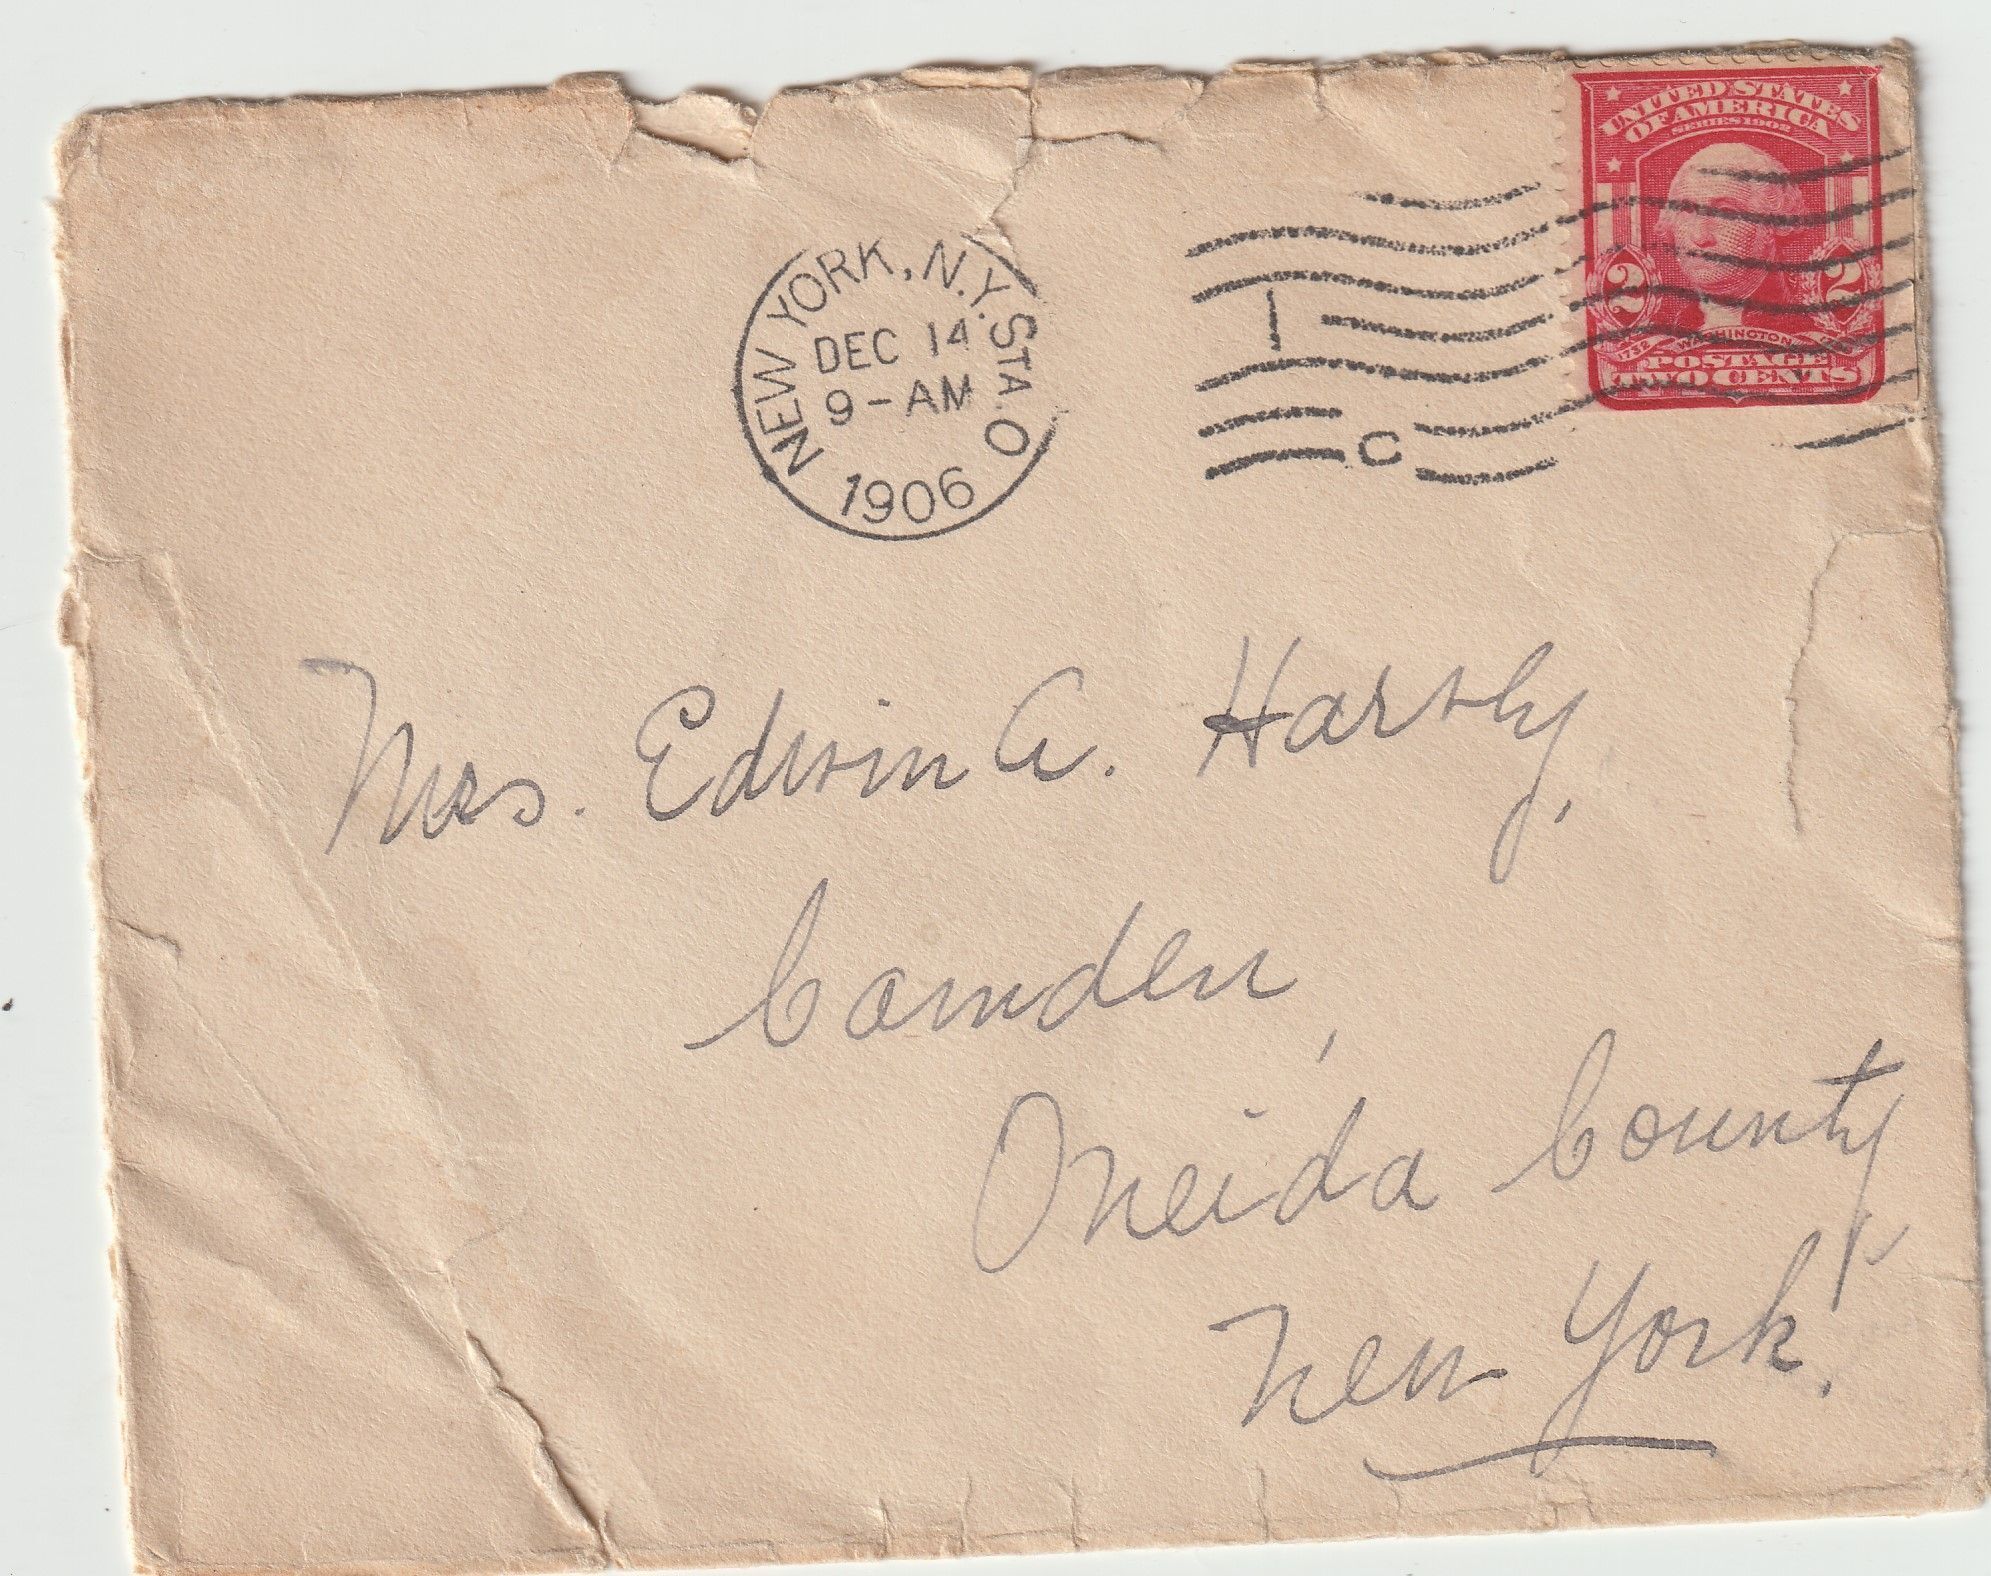 UNITED STATES
OF AMERICA
SERIES 1902
2 2
1732 WASHINGTON
POSTAGE
TWO CENTS
NEW YORK, N.Y. STA. O
DEC 14
9-AM
1906
1
C
Mrs. Edwin A.
Camden,
Oneida County
New York.